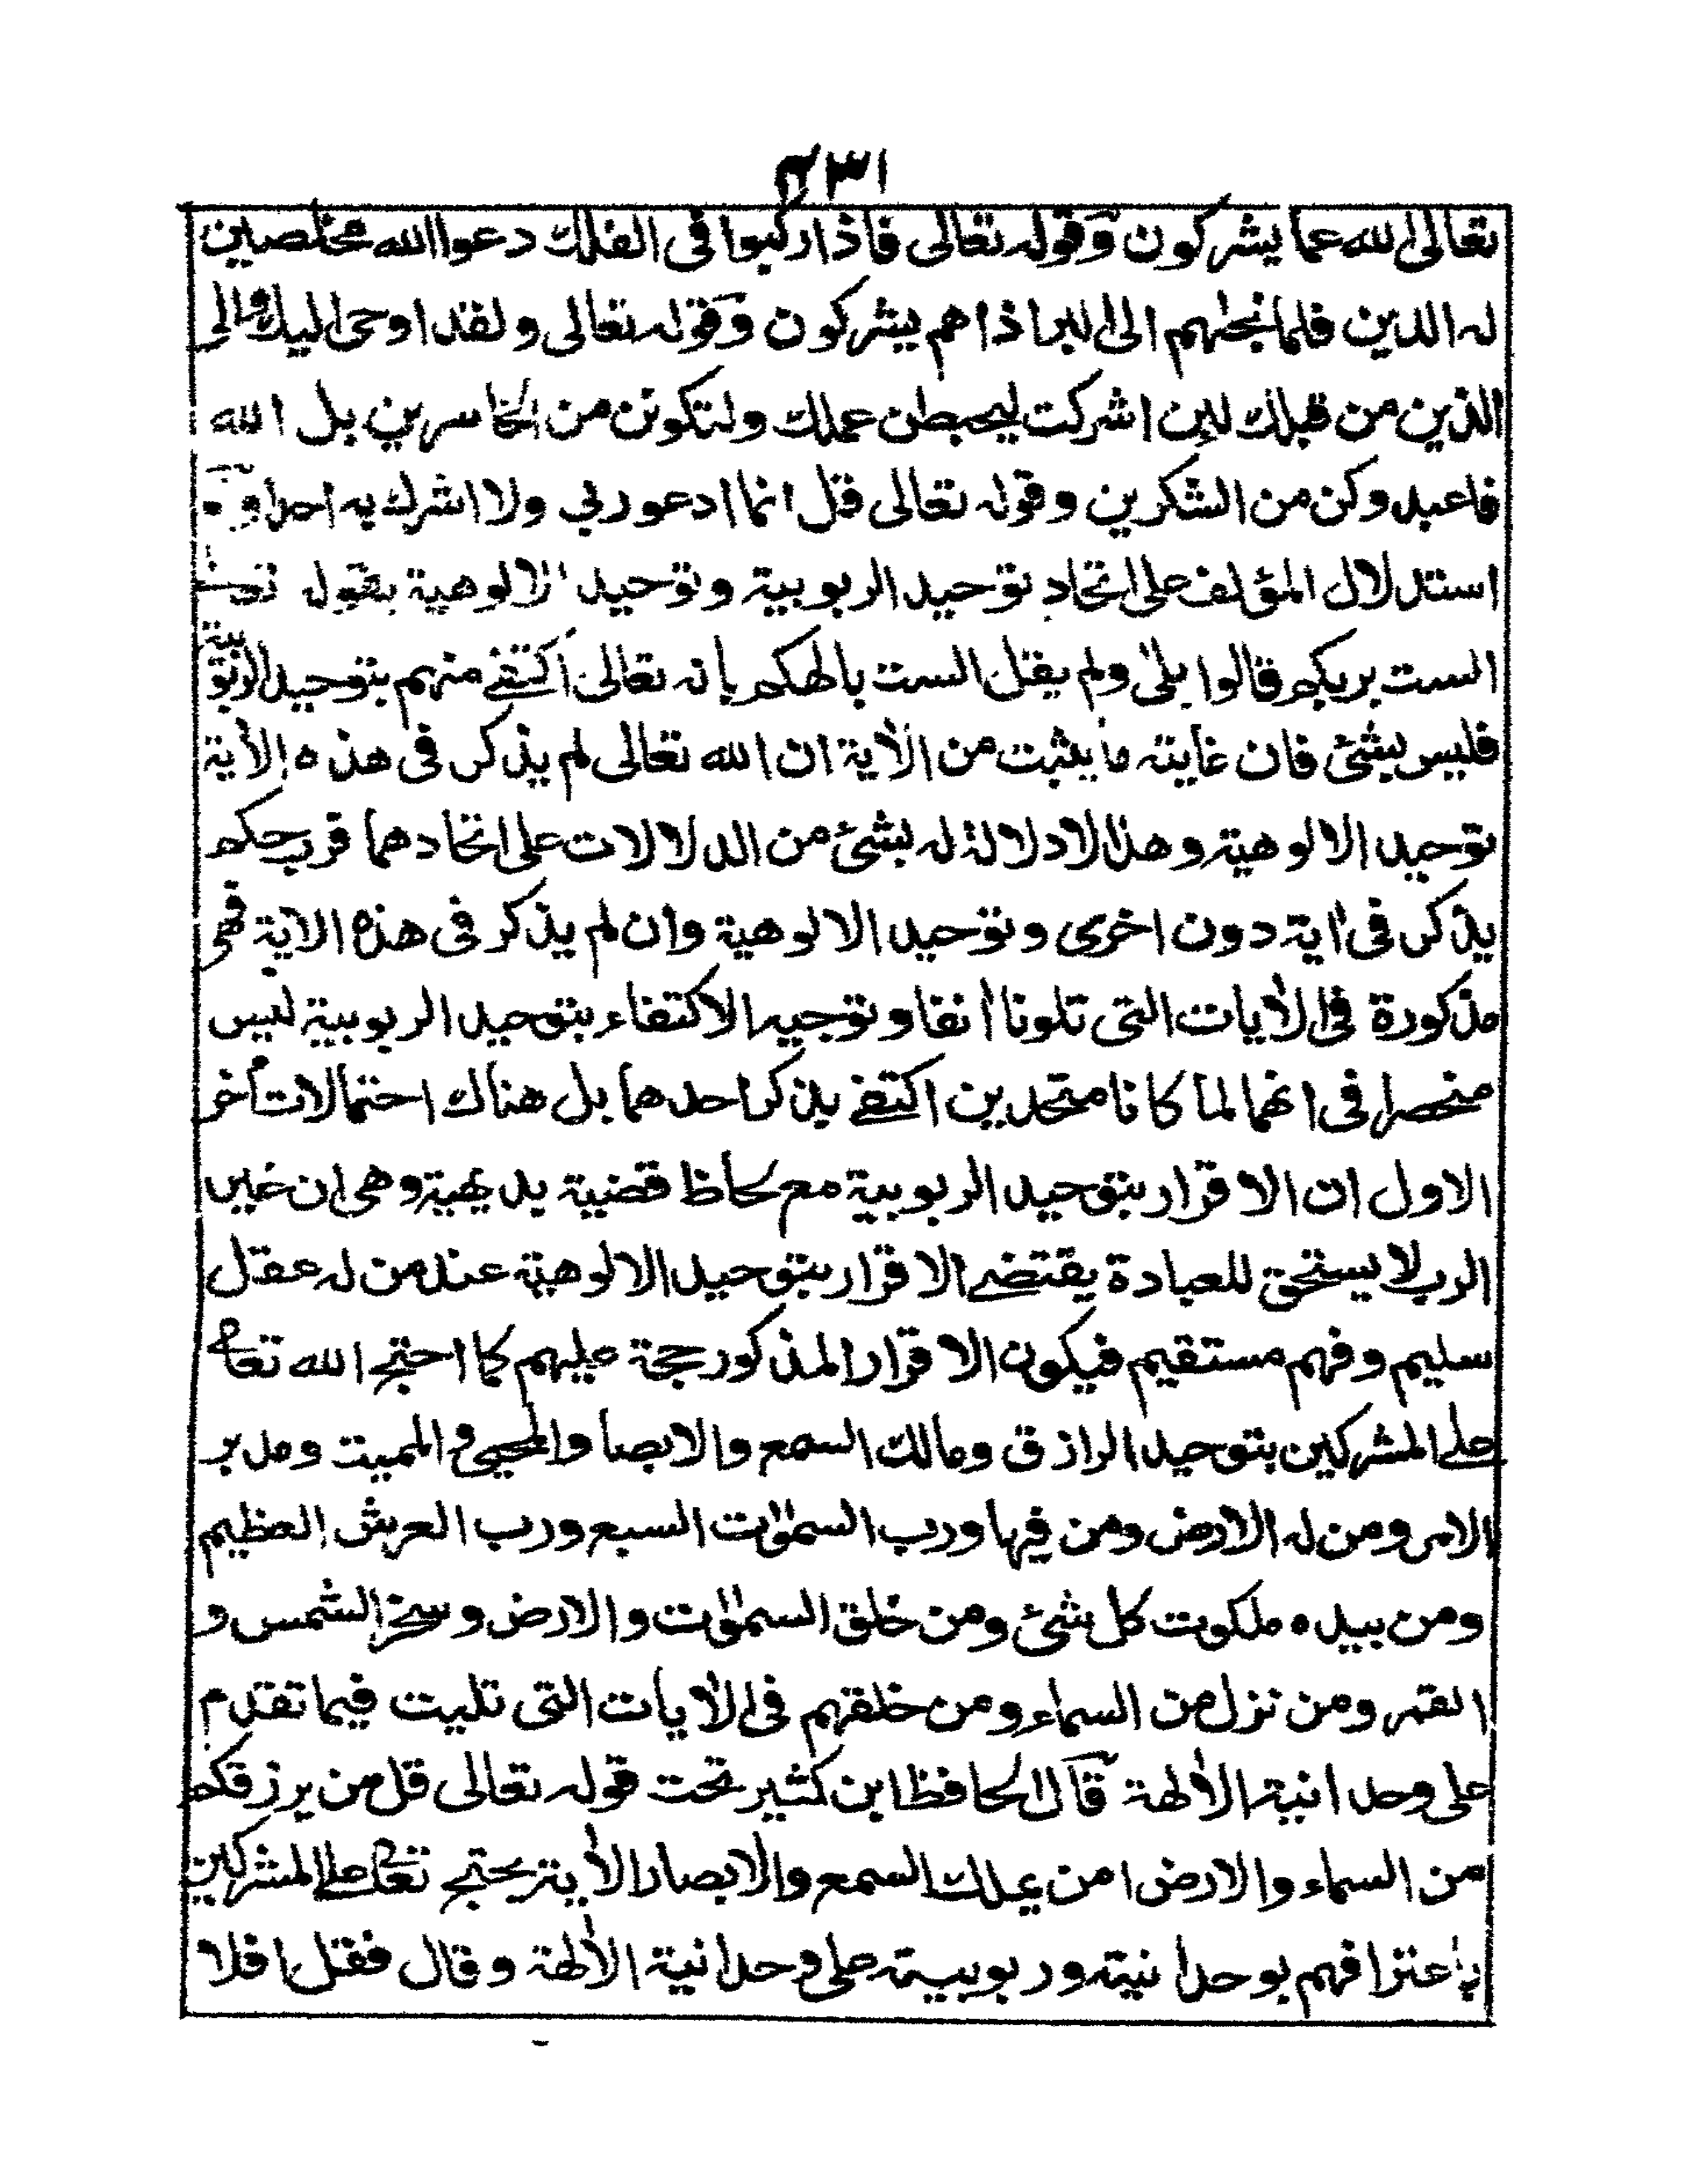 تعالى الله عما يشركون وقوله تعالى فاذا ركبوا فى الفلك دعوا الله مخلصين
له الدين فلما نجٰهم الى البر اذا هم يشركون وقوله تعالى ولقد اوحى اليك والى
الذين من قبلك لئن اشركت ليحبطن عملك ولتكونن من الخاسرين بل الله
فاعبد وكن من الشكرين وقوله تعالى قل انما ادعو ربي ولا اشرك به احدا و
استدلال المؤلف على اتحاد توحيد الربوبية وتوحيد الالوهية بقوله
الست بربكم قالوا بلىٰ ولم يقل الست بالهكم بانه تعالى اكتفے منهم بتوحيد الربوبية
فليس بشئ فان غايته ما يثبت من الاٰية ان الله تعالى لم يذكر فى هذه الاٰية
توحيد الالوهية وهذا لا دلالة له بشئ من الدلالات على اتحادهما فرب حكم
يذكر فى اٰية دون اخرى وتوحيد الالوهية وان لم يذكر فى هذه الاٰية فهى
مذكورة فى الاٰيات التى تلونا اٰنفا وتوجيه الاكتفاء بتوحيد الربوبية ليس
منحصرا فى انهما لما كانا متحدين اكتفے بذكر احدهما بل هناك احتمالات أخر
الاول ان الاقرار بتوحيد الربوبية مع لحاظ قضية بديهية وهى ان غير
الرب لا يستحق للعبادة يقتضے الاقرار بتوحيد الالوهية عند من له عقل
سليم وفهم مستقيم فيكون الاقرار المذكور حجة عليهم كما احتج الله تعالے
علے المشركين بتوحيد الرازق ومالك السمع والابصا والمحيى والمميت ومدبر
الامر ومن له الارض ومن فيها ورب السمٰوٰت السبع ورب العرش العظيم
ومن بيده ملكوت كل شئ ومن خلق السمٰوٰت والارض وسخر الشمس و
القمر ومن نزل من السماء ومن خلقهم فى الاٰيات التى تليت فيما تقدم
على وحدانية الاٰلهة قال الحافظ ابن كثير تحت قوله تعالى قل من يرزقكم
من السماء والارض امن يملك السمع والابصار الاٰية يحتج تعالے علے المشركين
باعترافهم بوحدانيته وربوبيته على وحدانية الاٰلهة وقال فقل افلا